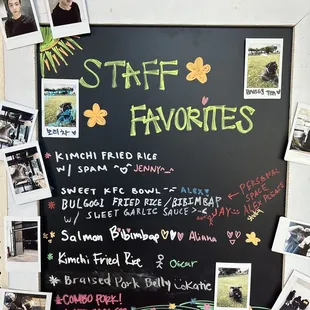 STAFF
FAVORITES
보리차
KIMCHI FRIED RICE
W/ SPAM JENNY
SWEET KFC BOWL ALEX
BULGOGI FRIED RICE/BIBIMBAP
W/ SWEET GARLIC SAUCE JAY
PERSONAL
SPACE
Salmon Bibimbap Alinna
Kimchi Fried Rice Oscar
Braised Pork Belly
COMBO PORK!